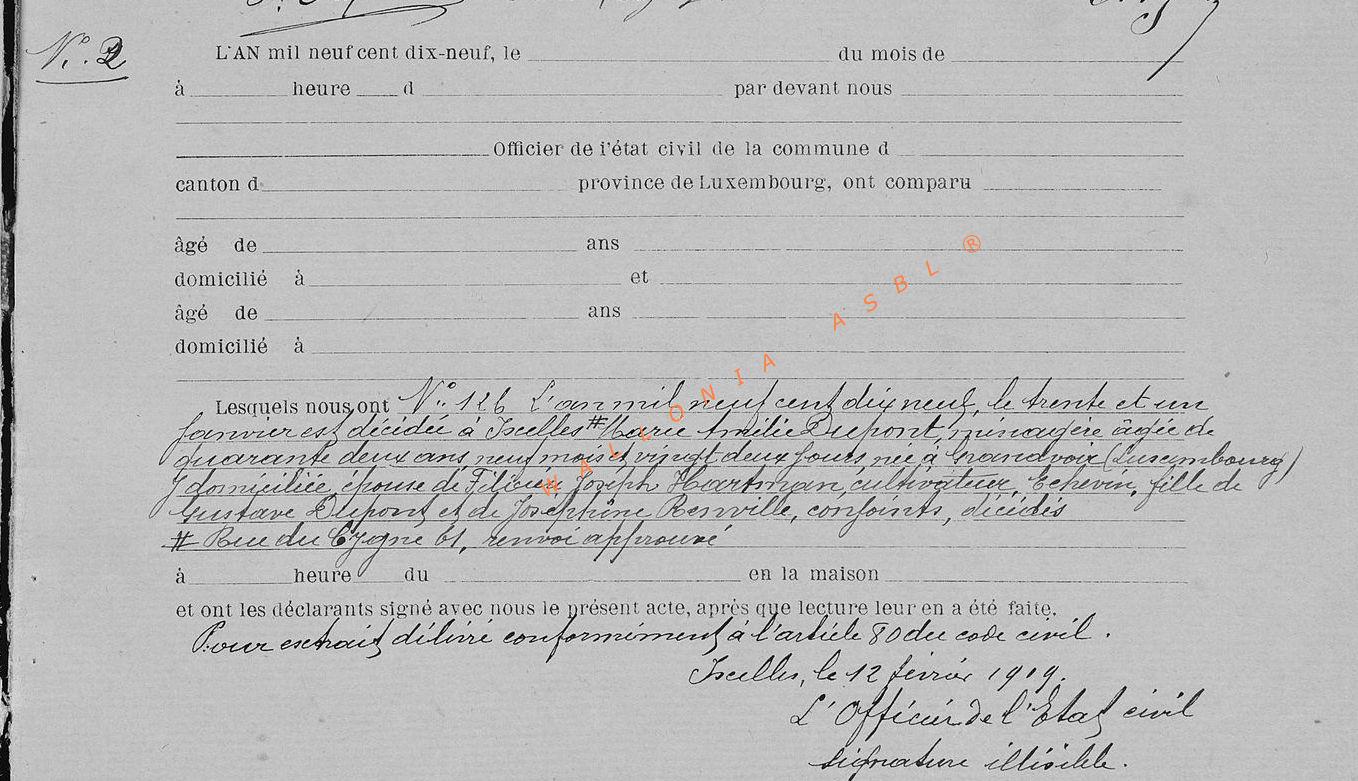 N°. 2
L'AN mil neuf cent dix-neuf, le du mois de
à heure d par devant nous
Officier de l'état civil de la commune d
canton d province de Luxembourg, ont comparu
âgé de ans
domicilié à et
âgé de ans
domicilié à
WALLONIA ASBL ®
Lesquels nous ont N°. 126 L'an mil neuf cent dix neuf, le trente et un
Janvier est décédée à Ixelles # Marie Amélie Dupont, ménagère âgée de
quarante deux ans neuf mois et vingt deux jours née à Grandvoir (Luxembourg)
y domiciliée, épouse de Joseph Hartman, cultivateur, Echevin, fille de
Gustave Dupont et de Joséphine Renville, conjoints, décédés
# Rue du Cygne 61, renvoi approuvé
à heure du en la maison
et ont les déclarants signé avec nous le présent acte, après que lecture leur en a été faite.
Pour extrait délivré conformément à l'article 80 du code civil.
Ixelles, le 12 février 1919.
L'Officier de l'Etat civil
signature illisible.